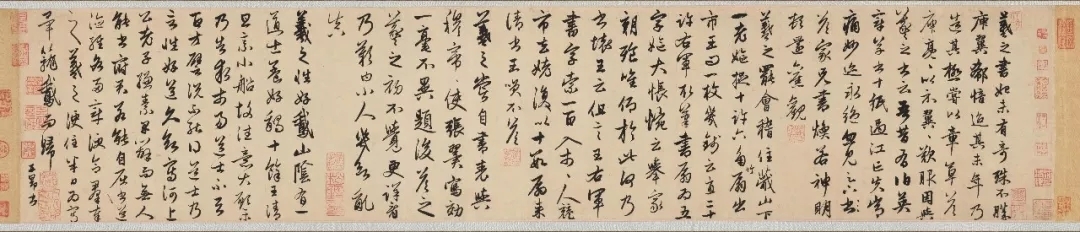 羲之書初未有奇殊不勝
庾翼郗愔迨其末年乃
造其極嘗以章草答
庾亮亮以示翼翼歎服因與
羲之書云吾昔有伯英
章草書十紙過江亡失常
痛妙迹永絕忽見足下
答家兄書煥若神明
頓還舊觀
羲之罷會稽住蕺山下
一老姥捉十許六角竹扇出
市王問一枚幾錢云直二十
許右軍取筆書扇扇為五
字姥大悵惋云舉家
朝飱惟仰於此何乃
書壞王云但言王右軍
書字索一百入市市人競
市去姥復以十數扇來
請書王笑不答
羲之嘗自書表與
穆帝帝使張翼寫効
一毫不異題後答之
羲之初不覺更詳看
乃歎曰小人幾欲亂
真
羲之性好鵝山陰有一
道士養好鵝十餘王清
旦乘小船故往意大願樂
乃告求市易道士不与
百方譬說不能得道士乃
言性好道久欲寫河上
公老子縑素早辦而無人
能書府君若能自屈書道
德經各兩章便合羣奉
之羲之便住半日為寫
畢籠鵝而歸 子昂書